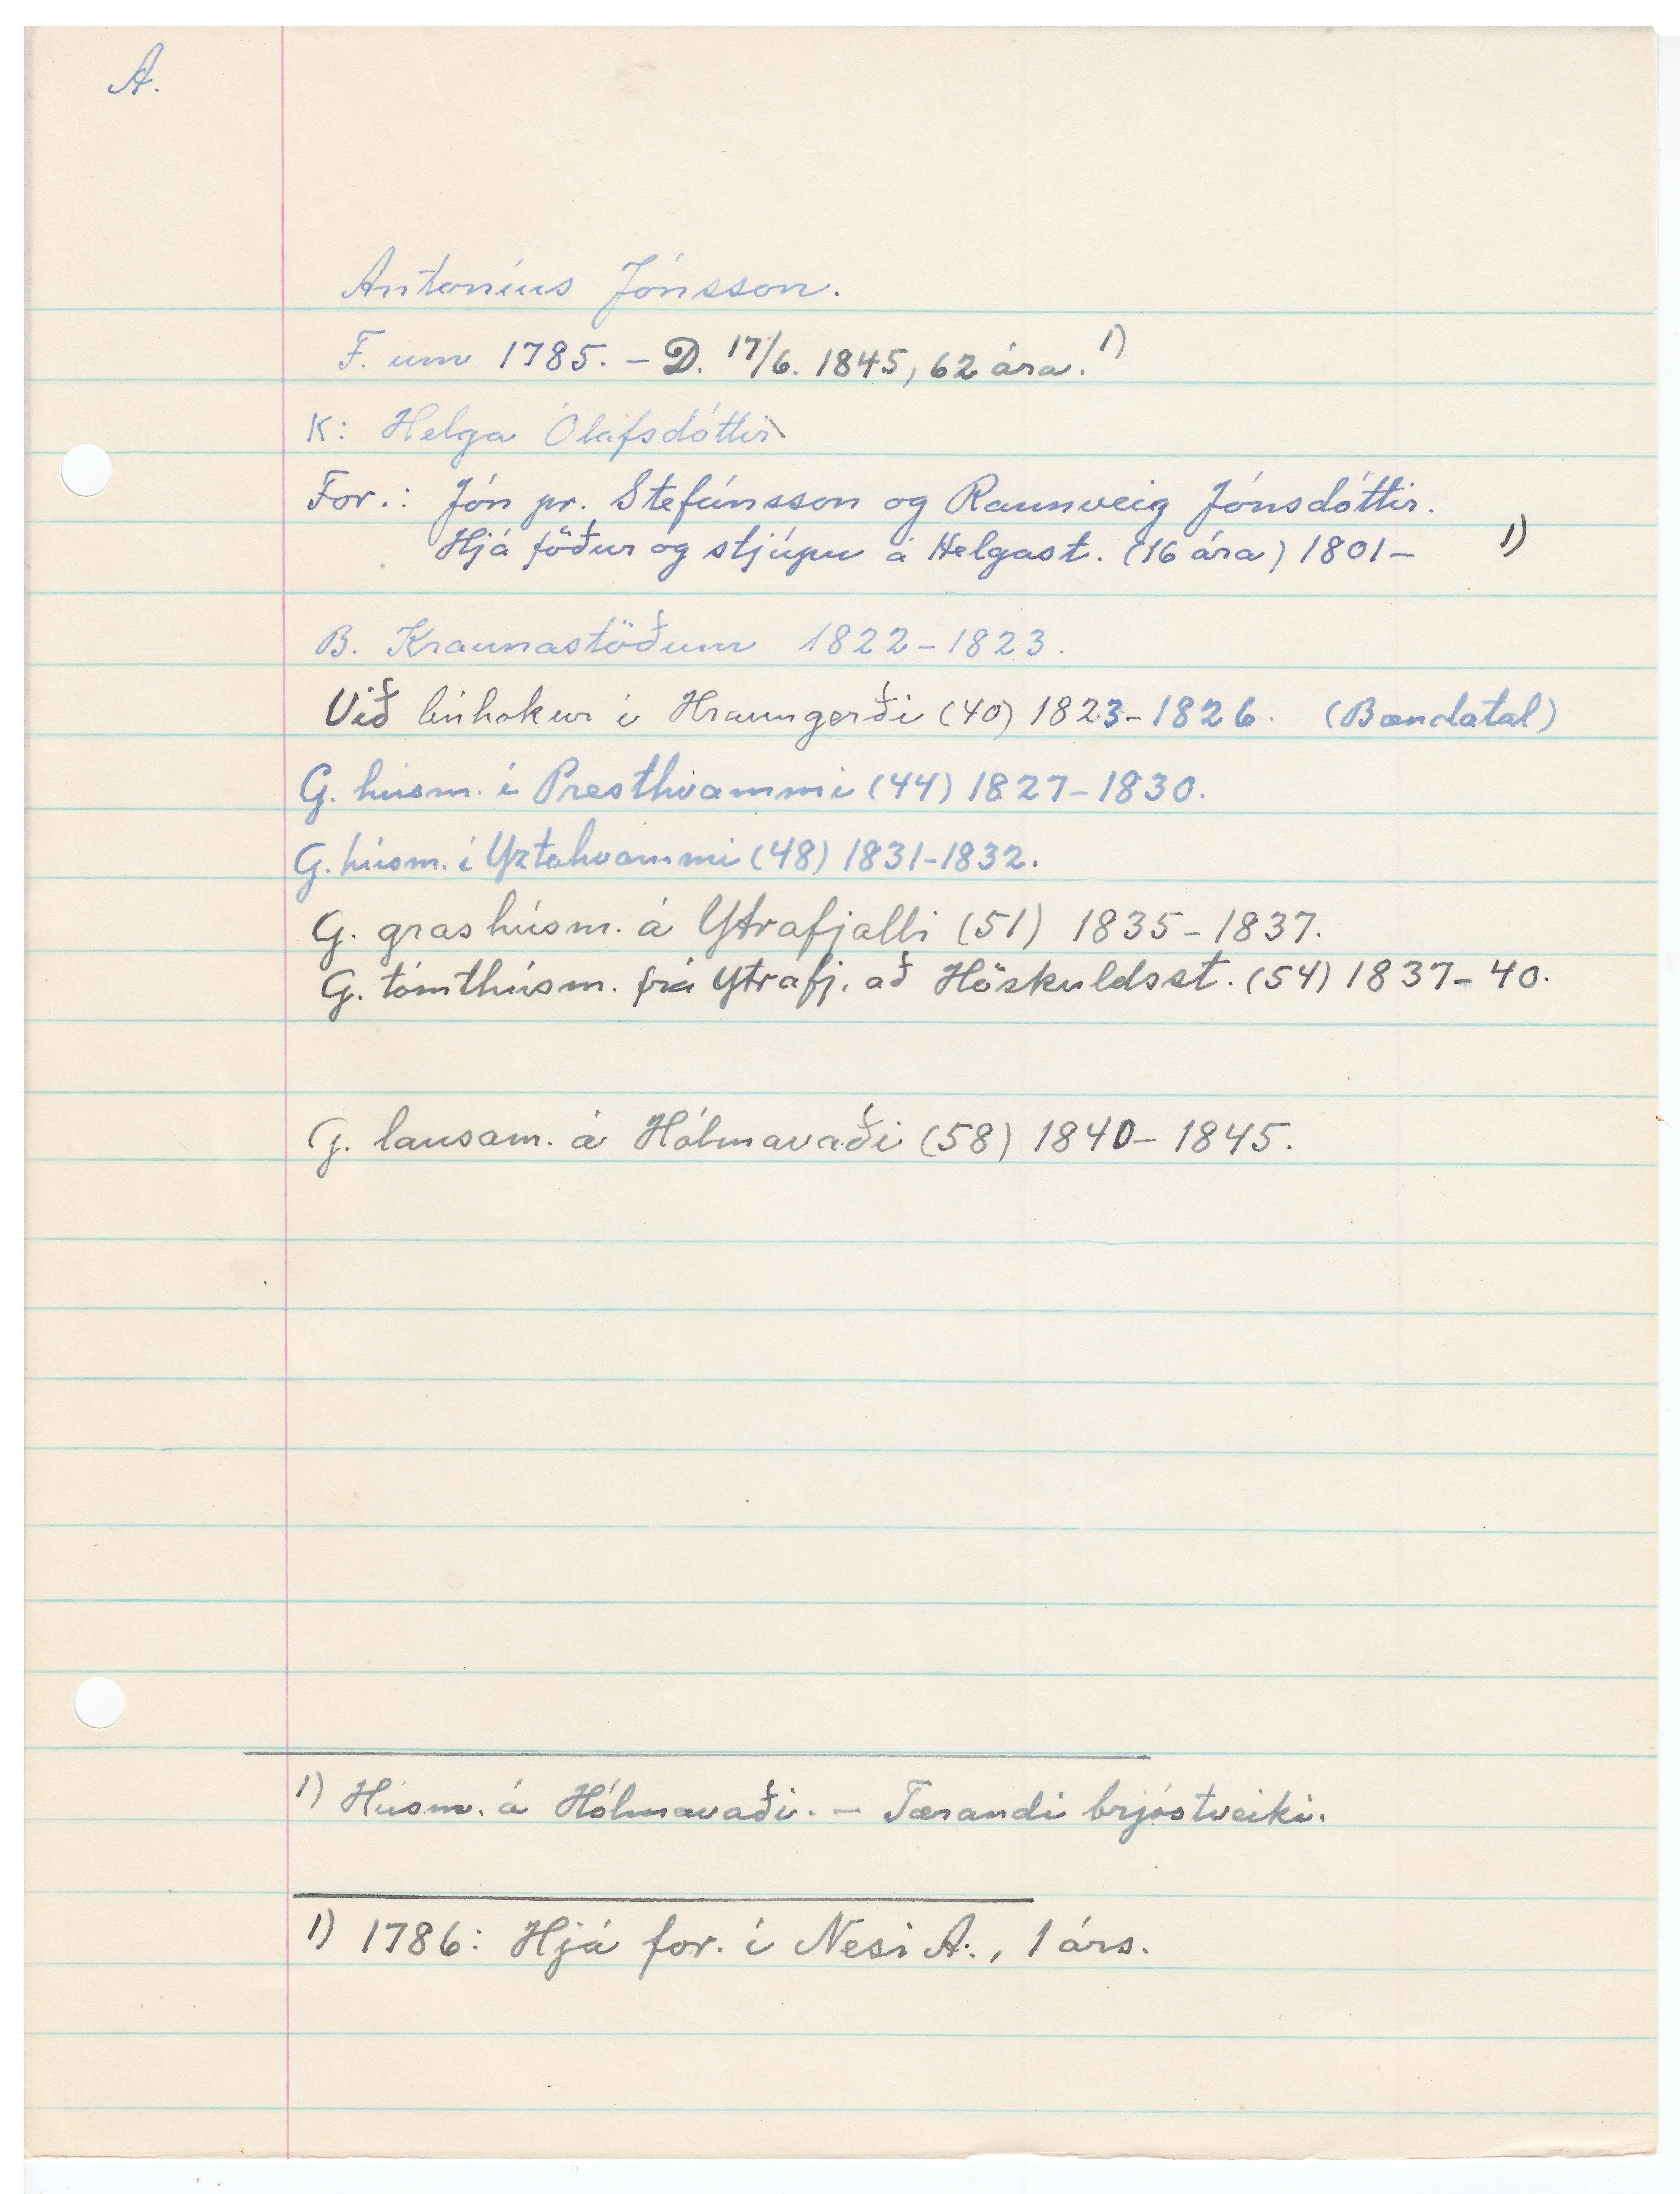 A.
Antoníus Jónsson.
F. um 1785. – D. 17/6. 1845, 62 ára. 1)
K: Helga Ólafsdóttir
For.: Jón pr. Stefánsson og Rannveig Jónsdóttir.
Hjá föður og stjúpu á Helgast. (16 ára) 1801– 1)
B. Kraunastöðum 1822–1823.
Við búhokur í Hraungerði (40) 1823–1826. (Bændatal)
G. húsm. í Presthvammi (44) 1827–1830.
G. húsm. í Yztahvammi (48) 1831–1832.
G. grashúsm. á Ytrafjalli (51) 1835–1837.
G. tómthúsm. frá Ytrafj. að Höskuldsst. (54) 1837–40.
G. lausam. á Hólmavaði (58) 1840–1845.
1) Húsm. á Hólmavaði. – Tærandi brjóstveiki.
1) 1786: Hjá for. í Nesi A., 1 árs.